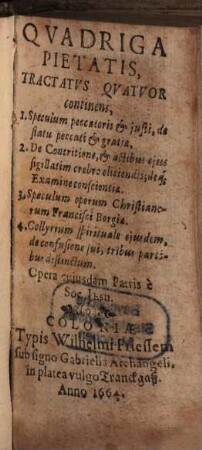 QVADRIGA
PIETATIS,
TRACTATVS QVATVOR
continens,
1. Speculum peccatoris & justi, de
statu peccati & gratiæ,
2. De Contritione, & actibus ejus
sigillatim crebro eliciendis, deq;
Examine conscientiæ.
3. Speculum operum Christiano-
rum Francisci Borgiæ.
4. Collyrium spirituale ejusdem,
de confusione sui, tribus parti-
bus distinctum.
Opera cujusdam Patris è
Soc. Jesu.
COLONIÆ
Typis Wilhelmi Friessem
sub signo Gabrielis Archangeli,
in platea vulgo Tranckgaß.
Anno 1664.